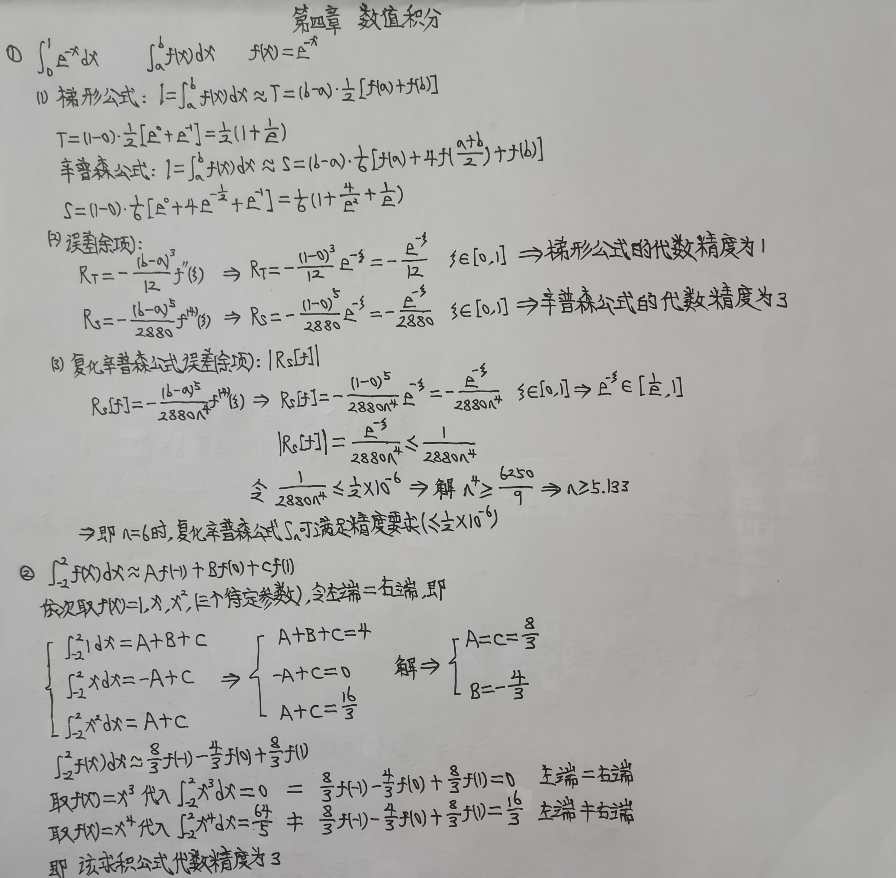 第四章 数值积分
① ∫₀¹e⁻ˣdx ∫ₐᵇf(x)dx f(x)=e⁻ˣ
(1) 梯形公式: I=∫ₐᵇf(x)dx≈T=(b-a)·½[f(a)+f(b)]
T=(1-0)·½[e⁰+e⁻¹]=½(1+1/e)
辛普森公式: I=∫ₐᵇf(x)dx≈S=(b-a)·⅙[f(a)+4f((a+b)/2)+f(b)]
S=(1-0)·⅙[e⁰+4e^(-1/2)+e⁻¹]=⅙(1+4/e²+1/e)
(2) 误差(余项):
R_T=-(b-a)³/12 f''(ξ) ⇒ R_T=-(1-0)³/12 e^(-ξ)=-e^(-ξ)/12 ξ∈[0,1] ⇒梯形公式的代数精度为1
R_S=-(b-a)⁵/2880 f⁽⁴⁾(ξ) ⇒ R_S=-(1-0)⁵/2880 e^(-ξ)=-e^(-ξ)/2880 ξ∈[0,1] ⇒辛普森公式的代数精度为3
(3) 复化辛普森公式误差(余项): |R_S[f]|
R_S[f]=-(b-a)⁵/2880n⁴ f⁽⁴⁾(ξ) ⇒ R_S[f]=-(1-0)⁵/2880n⁴ e^(-ξ)=-e^(-ξ)/2880n⁴ ξ∈[0,1]⇒e^(-ξ)∈[1/e,1]
|R_S[f]|=e^(-ξ)/2880n⁴≤1/2880n⁴
令 1/2880n⁴≤½×10⁻⁶ ⇒ 解 n⁴≥6250/9 ⇒ n≥5.133
⇒即 n=6时,复化辛普森公式Sₙ可满足精度要求(≤½×10⁻⁶)
② ∫₋₂²f(x)dx≈Af(-1)+Bf(0)+Cf(1)
依次取f(x)=1,x,x²,(三个待定参数),令左端=右端,即
{ ∫₋₂²1dx=A+B+C { A+B+C=4 { A=C=8/3
∫₋₂²xdx=-A+C ⇒ -A+C=0 解⇒
∫₋₂²x²dx=A+C A+C=16/3 B=-4/3
∫₋₂²f(x)dx≈8/3f(-1)-4/3f(0)+8/3f(1)
取f(x)=x³ 代入 ∫₋₂²x³dx=0 = 8/3f(-1)-4/3f(0)+8/3f(1)=0 左端=右端
取f(x)=x⁴ 代入 ∫₋₂²x⁴dx=64/5 ≠ 8/3f(-1)-4/3f(0)+8/3f(1)=16/3 左端≠右端
即 该求积公式代数精度为3